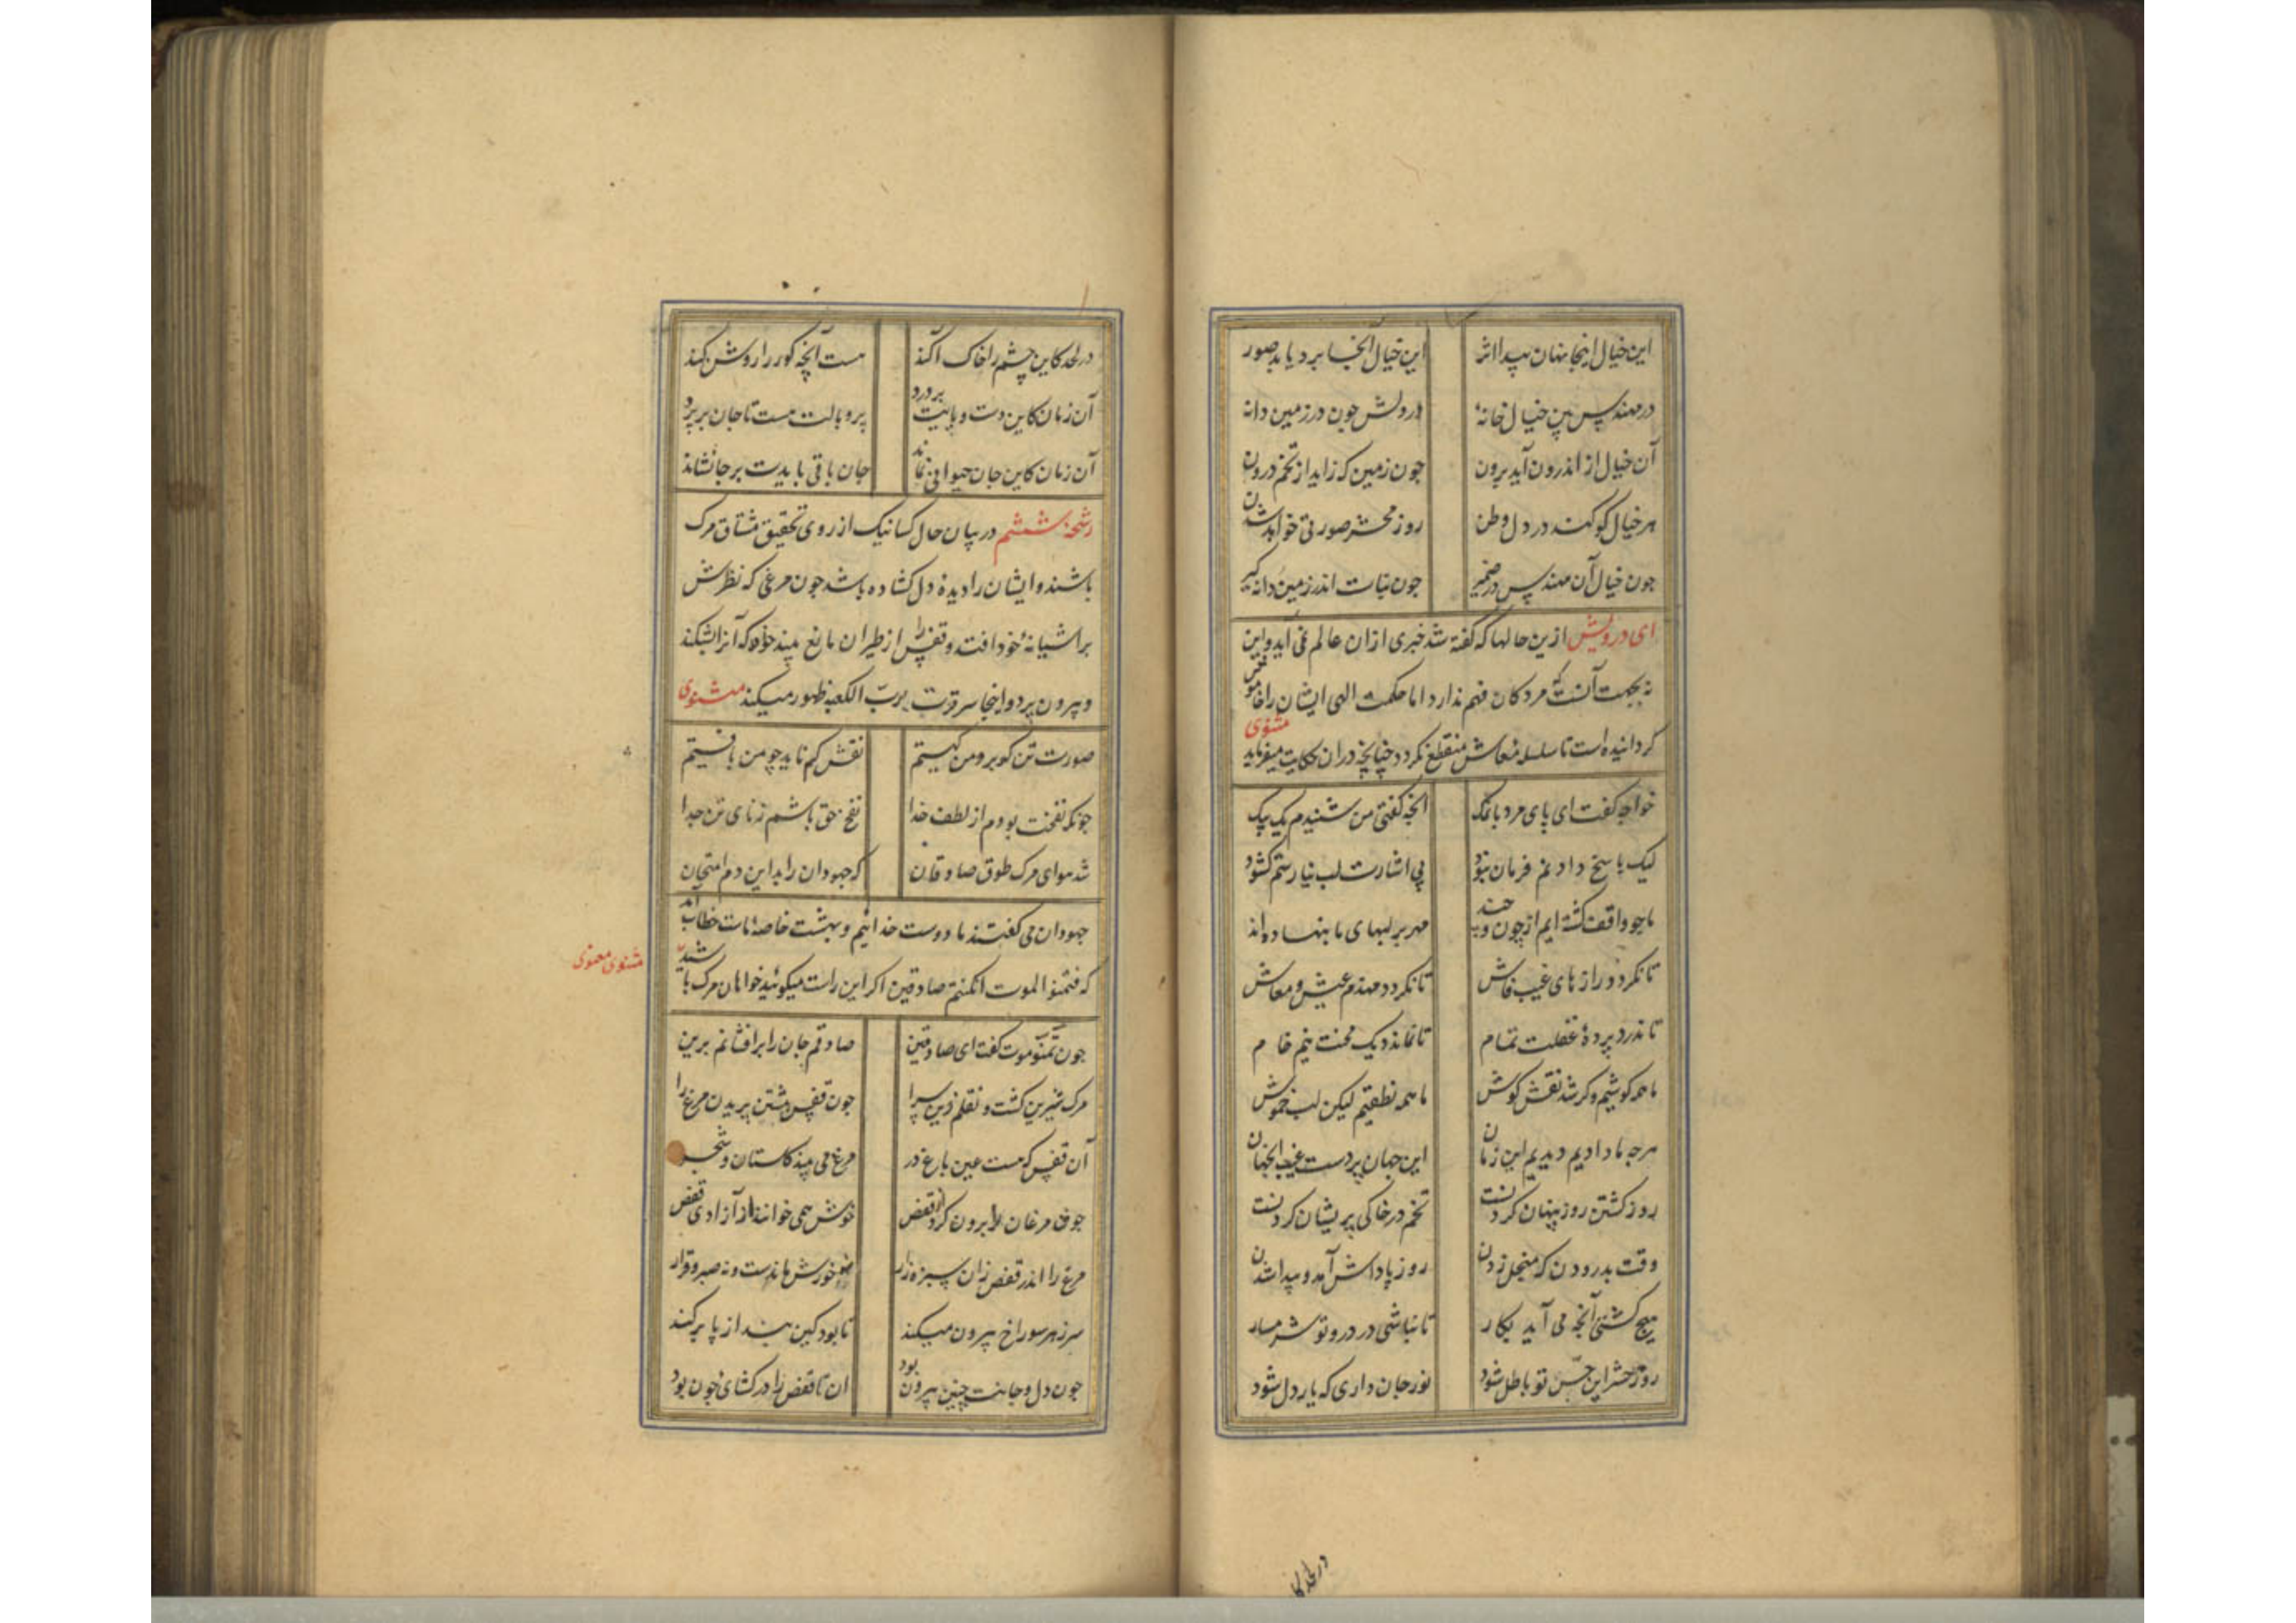 این خیال اینجا نهان پیدا اثر این خیال آنجا بردیا بد صور
در مهندس بین خیال خانهٔ در دلش چون در زمین دانه
آن خیال از اندرون آید برون چون زمین که زاید از تخم درون
هر خیال کو کند در دل وطن روز محشر صورتی خواهد شدن
چون خیال آن مهندس در ضمیر چون نبات اندر زمین دانه گیر
ای درویش ازین حالها که گفته شد خبری ازان عالم نمی آید و این
نه بجهت آنست که مردکان فهم ندارد اما حکمت الهی ایشان را خاموش
کردانیده است تا سلسله معاش منقطع نکردد چنانچه دران حکایت میفرماید مثنوی
خواجه کفت ای پای مرد با نمک انچه کفتی من شنیدم یک بیک
لیک پاسخ دادنم فرمان نبود بی اشارت لب نیارستم کشود
ما چو واقف کشته ایم از چون و چند مهر بر لبهای ما بنهاده اند
تا نکردد رازهای غیب فاش تا نکردد منهدم عیش و معاش
تا ندرد پردهٔ غفلت تمام تا نماند دیک محنت نیم خام
ما همه کوشیم و کر شد نقش کوش ما همه نطقیم لیکن لب خموش
هرچه ما دادیم دیدیم این زمان این جهان پردست غیب انجهان
روز کشتن روز پنهان کردنست تخم در خاکی پریشان کردنست
وقت بدرودن که منجل زدن روز پاداش آمد و پیدا شدن
هیچ کشتی آنچه می آید بکار تا نباشی در درو تو شرمسار
روز حشر این حسّ تو باطل شود نور جان داری که یار دل شود
در لحد کا
در لحد کاین چشم را خاک آکند هست آنچه کور را روشن کند
آن زمان کاین دست و پایت بر درد پر و بالت هست تا جان بر پرد
آن زمان کاین جان حیوانی نماند جان باقی بایدت بر جا نشاند
رشحهٔ ششم در بیان حال کسانیک از روی تحقیق مشتاق مرک
باشند و ایشان را دیدهٔ دل کشاده باشد چون مرغی که نظرش
بر اشیانهٔ خود افتد و قفس را از طیران مانع بیند خواهد که آنرا بشکند
و بیرون پرد و اینجا سر فزت بربّ الکعبه ظهور میکند مثنوی
صورت تن کو برو من کیستم نقش کم ناید چو من باقیستم
چونکه نفخت بودم از لطف خدا نفخ حق باشم ز نای تن جدا
شد هوای مرک طوق صادقان که جهودان را بد این دم امتحان
جهودان می کفتند ما دوست خدائیم و بهشت خاصهٔ ماست خطاب آمد
که فتمنوا الموت ان کنتم صادقین اکر این راست میکوئید خواهان مرک باشید
مثنوی معنوی
چون تمنّو موت کفت ای صادقین صادقم جان را بر افشانم برین
مرک شیرین کشت و نقلم زین سرا چون قفس هشتن پریدن مرغ را
آن قفس که هست عین باغ در مرغ می بیند کلستان و شجر
جوق مرغان از برون کرد قفص خوش همی خوانند از آزادی قصص
مرغ را اندر قفص زان سبزه زار نه خورش ماندست و نه صبر و قرار
سر ز هر سوراخ بیرون میکند تا بود کین بند از پا بر کند
چون دل و جانت چنین بیرون بود ان تا قفص را در کشای چون بود